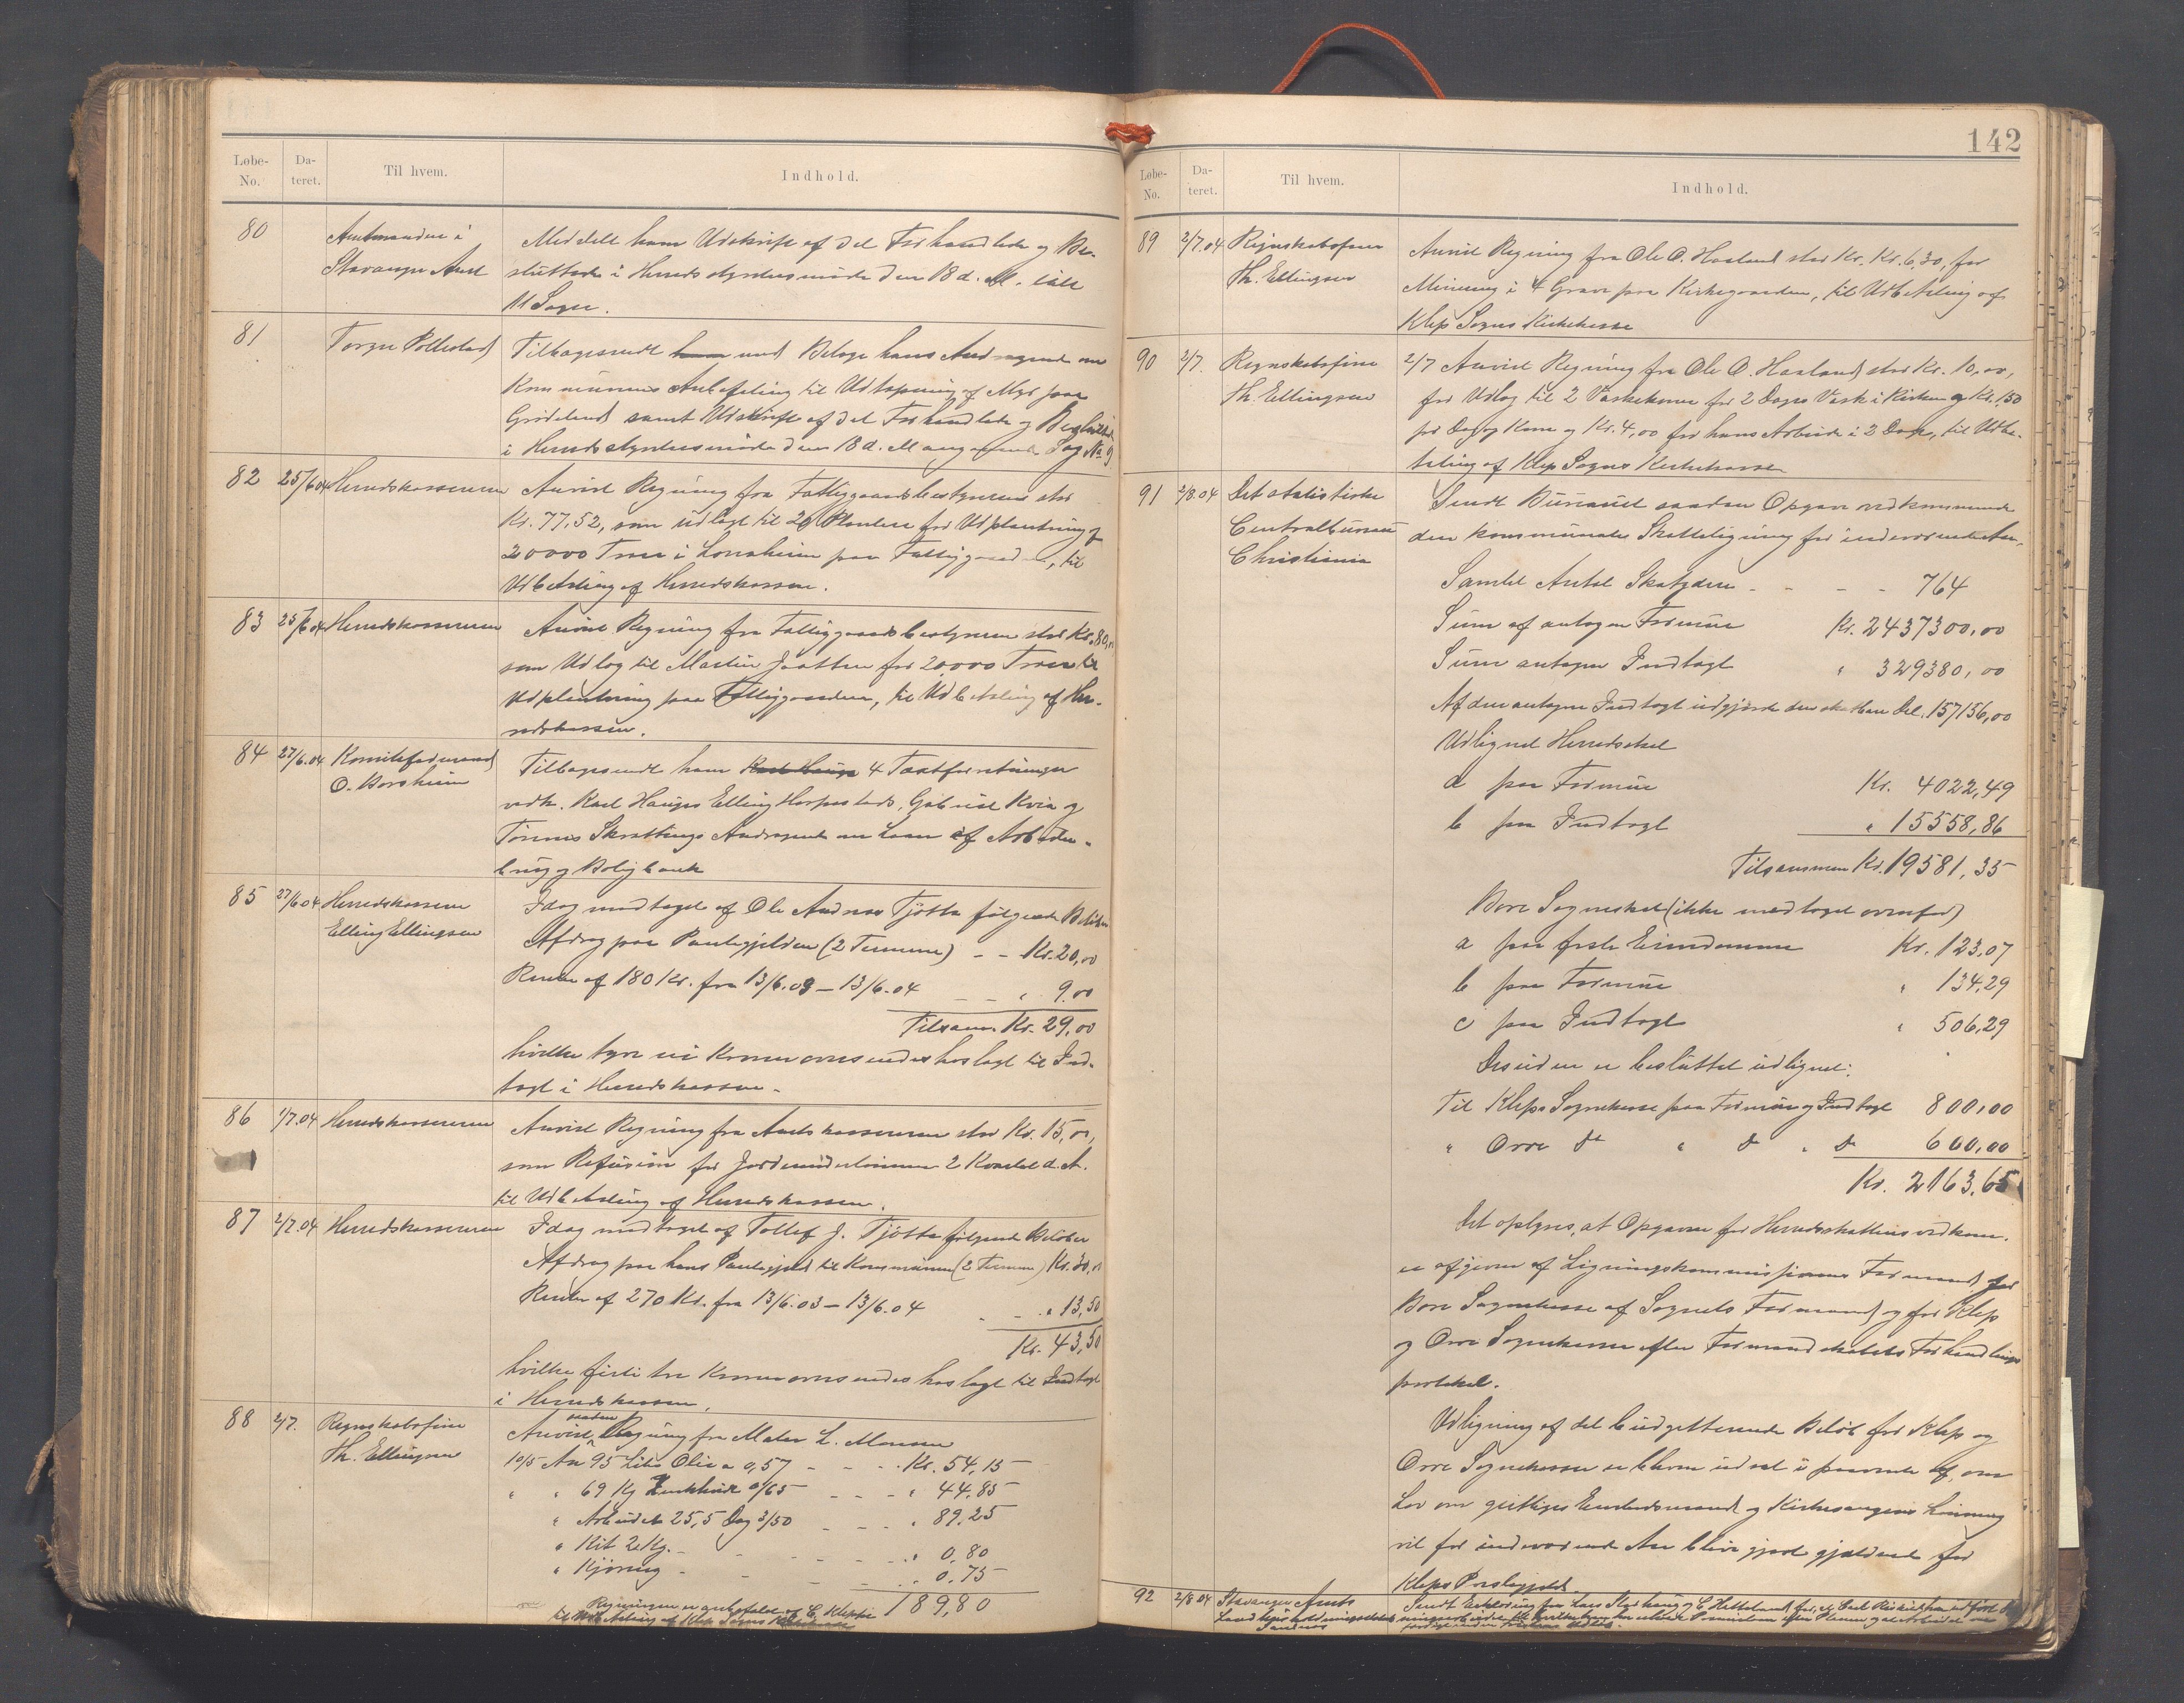 Løbe-
No.
Da-
teret.
Til hvem.
Indhold.
80
Amtmanden i
Stavanger Amt
Meddelt ham Udskrift af det Forhandlede og Be-
sluttede i Herredsstyrelsesmøde den 18 d. M. ialt
11 Sager.
81
Torger Pollestad
Tilbagesendt ham med Bilage hans Andragende om
Kommunens Anbefaling til Udtapning af Myr paa
Grödeland samt Udskrift af det Forhandlede og Besluttede
i Herredsstyrelsesmøde den 18 d. M angaaende Sag No 9
82
25/6 04
Herredskassereren
Anvist Regning fra Fattiggaardsbestyreren stor
Kr. 77,52, som udlagt til 20 Plantere for Udplantning af
20000 Træer i paa Fattiggaarden, til
Udbetaling af Herredskassen.
83
25/6 04
Herredskassereren
Anvist Regning fra Fattiggaardsbestyreren stor Kr. 80,00
som Udlæg til Martin Jaatten for 20,000 Træer til
Udplantning paa Fattiggaarden, til Udbetaling af Her-
redskassen.
84
27/6.04
Komiteformand
O. Borsheim
Tilbagesendt ham Karl Hauge 4 Taxtforretninger
vedk. Karl Hauges Elling Harpestads, Gabriel Kvia og
Tønnes Skrattings Andragende om Laan af Arbeider-
brug og Boligbank
85
27/6 04
Herredskasserer
Elling Ellingsen
Idag modtaget af Ole Andreas Tjøtta følgende Beløber
Afdrag paa Pantegjelden (2 Terminer) - - Kr. 20,00
Renter af 180 Kr. fra 13/6.03 – 13/6.04 - - " 9.00
Tilsam. Kr. 29,00
hvilke tyve ni Kroner oversendes hoslagt til Ind-
tægt i Herredskassen.
86
1/7.04
Herredskassereren
Anvist Regning fra Amtskassereren stor Kr. 15,00,
som Refusion for Jordmoderlønnen 2 Kvartal d. A.
til Udbetaling af Herredskassen.
87
2/7.04
Herredskassereren
Idag modtaget af Tollef J. Tjøtta følgende Beløber
Afdrag paa hans Pantegjæld til Kommunen (2 Terminer) Kr. 30,00
Renter af 270 Kr. fra 13/6.03 – 13/6.04 - - " 13,50
Kr. 43,50
hvilke firti tre Kroner oversendes hoslagt til Indtægt
i Herredskassen.
88
2/7.
Regnskabsfører
Th. Ellingsen
Anvist saadan Regning fra Maler L. Monsen
10/5 An 95 Liter Olie a 0,57 - - - Kr. 54,15
" " 69 Kg Zinkhvidt 0/65 - - - " 44,85
" Arbeidet 25,5 Dag 3/50 - - - " 89,25
" Kit 2 Kg. - - - - " 0,80
" Kjøring - - - - " 0,75
189,80
Regningen er anbefalet af C. Kleppe
til Udbetaling af Klep Sogns Kirkekasse
142
Løbe-
No.
Da-
teret.
Til hvem.
Indhold.
89
2/7.04
Regnskabsfører
Th. Ellingsen
Anvist Regning fra Ole O. Haaland stor Kr. Kr. 6,30, for
Minering i 4 Grave paa Kirkegaarden, til Udbetaling af
Klep Sogns Kirkekasse
90
2/7
Regnskabsfører
Th. Ellingsen
2/7 Anvist Regning fra Ole O. Haaland stor Kr. 10,00,
for Udlæg til 2 Vaskekoner for 2 Dages Vask i Kirken a Kr. 1,50
pr Dag og Kone og Kr. 4,00 for hans Arbeide i 2 Dage, til Udbe-
taling af Klep Sogns Kirkekasse
91
2/8.04
Det statistiske
Centralbureau
Christiania
Sendt Bureauet saadan Opgave vedkommende
den kommunale Skatteligning for indeværende Aar.
Samlet Antal Skatydere - - - - 764
Sum af antagen Formue Kr. 2437300,00
Sum antagen Indtægt " 329380,00
Af den antagne Indtægt udgjorde den skatbare Del. 157156,00
Udlignet Herredsskat
a paa Formue Kr. 4022,49
b paa Indtægt " 15558,86
Tilsammen Kr. 19581,35
Bore Sogneskat (ikke medtaget ovenfor)
a paa faste Eiendomme Kr. 123,07
b paa Formue " 134,29
c paa Indtægt " 506,29
Desuden er besluttet udlignet:
Til Kleps Sognekasse paa Formue og Indtægt 800,00
" Orre do " do " do 600,00
Kr. 2163,65
Det oplyses, at Opgaven for Herredsskattens vedkom.
er afgiven af Ligningskommissionens Formand, for
Bore Sognekasse af Sognets Formand og for Klep
og Orre Sognekasser efter Formandskabets Forhandlings
protokol.
Udligning af det budgetterende Beløb for Klep og
Orre Sognekasser er bleven udsat i paavente af, om
Lov om geistliges Enkedsmænd og Kirkesangeres Lønning
vil for indeværende Aar blive gjort gjældende for
Kleps Prestegjeld.
92
2/8 04
Stavanger Amts
Sandnes
Sendt Erklæring fra Lars Skarhaug og C. Hetteland